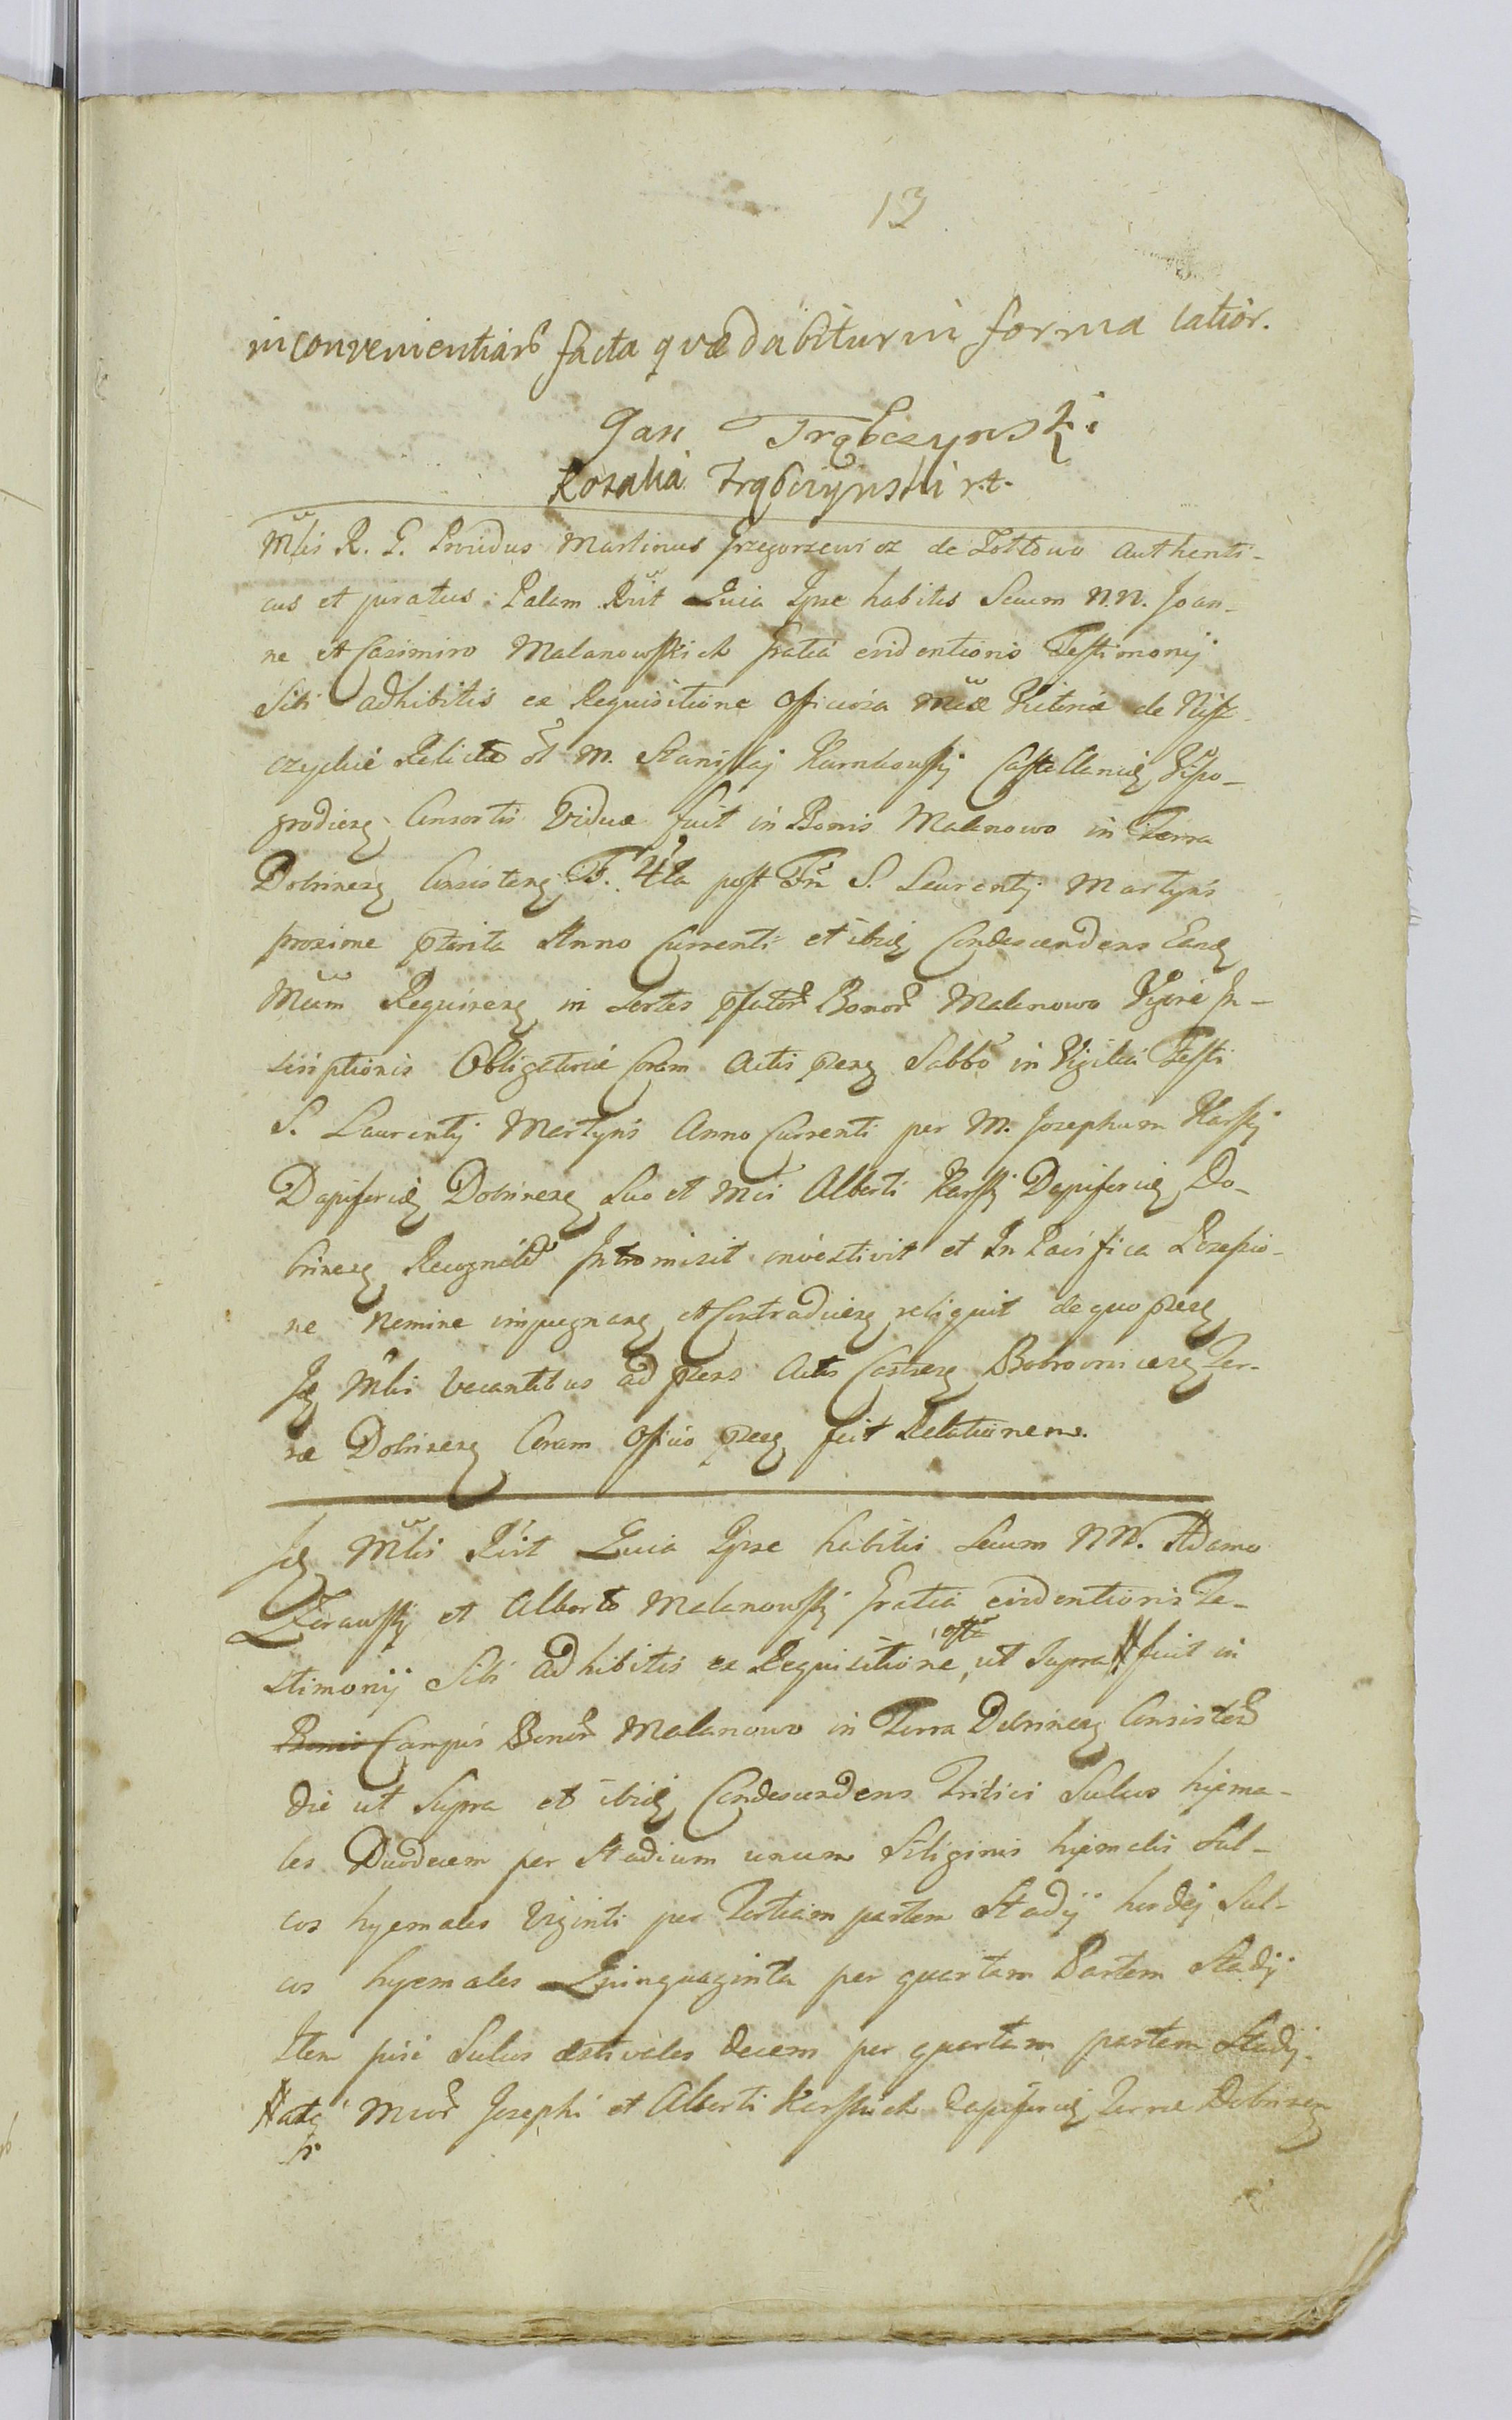 13
in convenientiarb facta quæ dabitur in forma latior.
Jan Trąbczynski
Rozalia Trąbczynski r.t.
Mlis R. G. Providus Martinus Grzegorzewicz de authenti-
cus et juratus: Palam Rcit Quia Ipse habitis Secum N.N. Joan-
ne et Casimiro Malanowskich Gratia evidentioris Testimonij
Sibi adhibitis ex Requisitione Officiosa Mcæ de
Relictæ ol M. Stanislaj Karnkowskj Castellanidæ
Consortis Viduæ fuit in Bonis Malanowo in Terra
Dobrinen Consisten F. 4ta post Fm S. Laurentij Martyris
proxime pterita Anno Currenti et ibidem Condescendens Eand
Mcam Requiren in Sortes pfator Bonor Malanowo Vigore In-
scriptionis Obligatoriæ Coram Actis pen Sabbo in Vigilia Festi
S. Laurentij Martyris Anno Currenti per M. Josephum Karskj
Dapiferid Dobrinen Suo et Mci Alberti Karskj Dapiferid Do-
brinen Intromisit investivit et In Pacifica Possessio-
ne Nemine impugnan et Contradicen reliquit de quo pen
Id Mlis vacantibus ad pens Acta Castren Bobrovnicen Ter-
ræ Dobrinen Coram Officio pen fecit Relationem.
Id Mlis Rcit Quia Ipse habitis Secum NN. Adamo
et Alberto Malanowskj Gratia evidentioris Te-
stimonij Sibi adhibitis ex Requisitione, ut Supra # fuit in
Bonis Campis Bonor Malanowo in Terra Dobrinen Consisten
die ut Supra et ibid Condescendens Tritici Sulcos hyema-
les Duodecem per Stadium unum Siliginis hyemalis Sul-
cos hyemales Viginti per Tertiam partem Stadij hordej Sul-
cos hyemales Quinquaginta per quartam Partem Stadij
Item pisi Sulcos æstivales decem per quartam partem Stadij.
# Mcor Josephi et Alberti Karskich Dapiferid Terræ Dobrinen